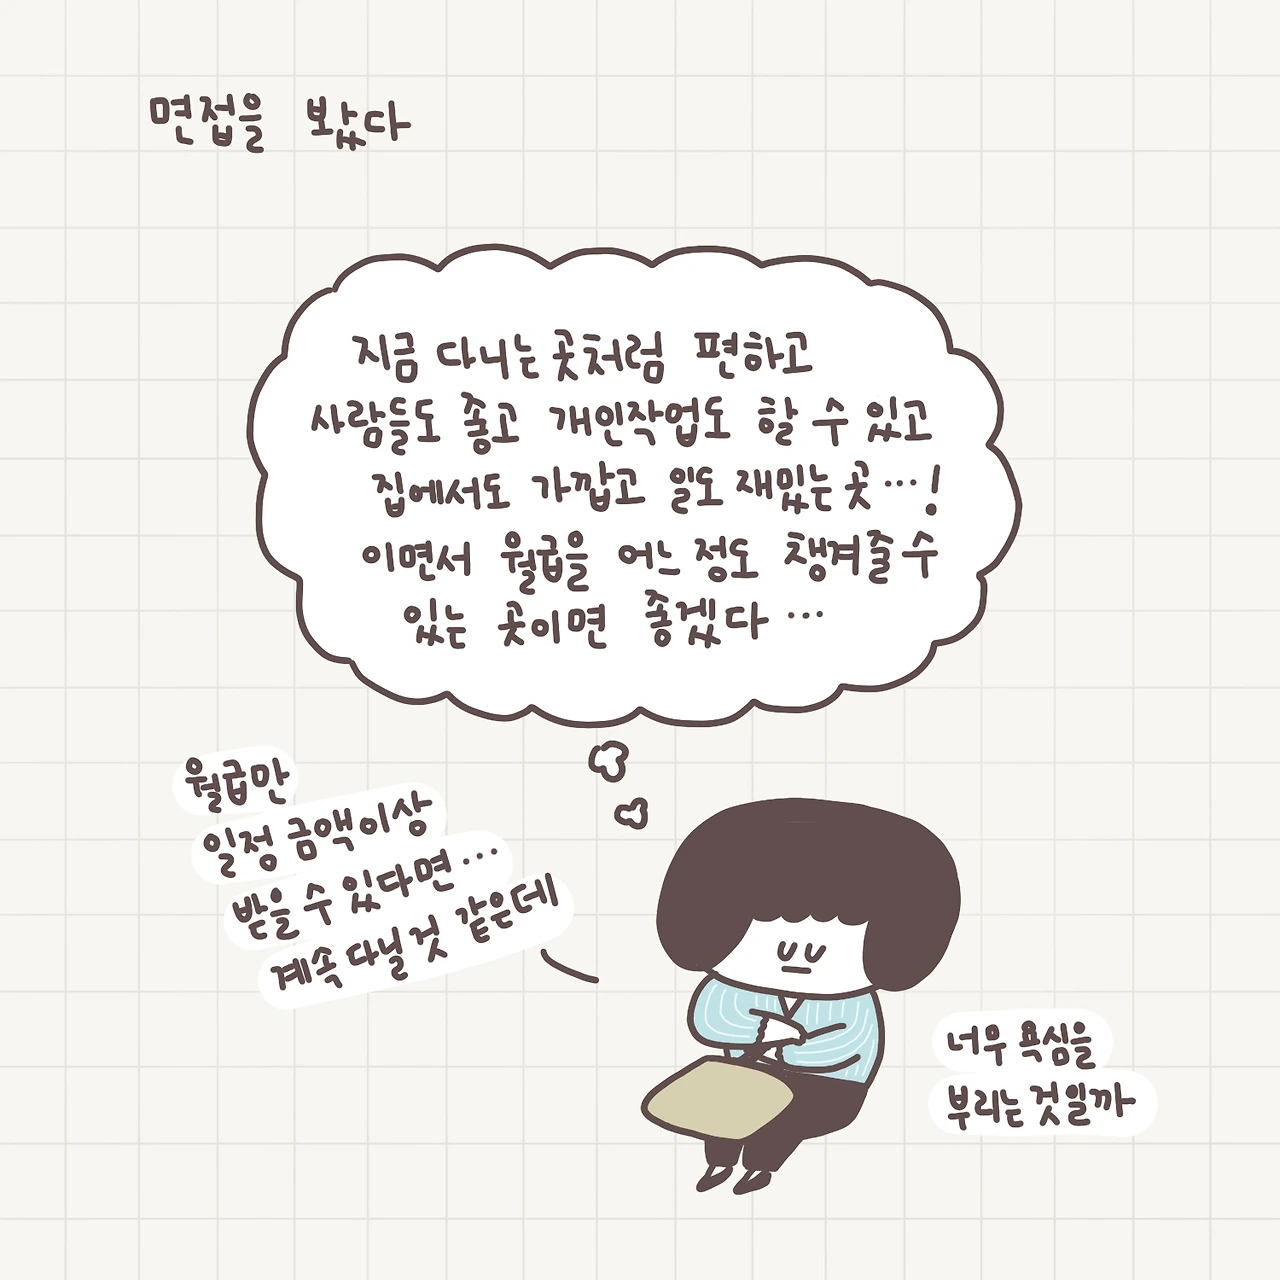 면접을 봤다
지금 다니는 곳처럼 편하고
사람들도 좋고 개인작업도 할 수 있고
집에서도 가깝고 일도 재밌는 곳…!
이면서 월급을 어느 정도 챙겨줄 수
있는 곳이면 좋겠다…
월급만
일정 금액 이상
받을 수 있다면…
계속 다닐 것 같은데
너무 욕심을
부리는 것일까